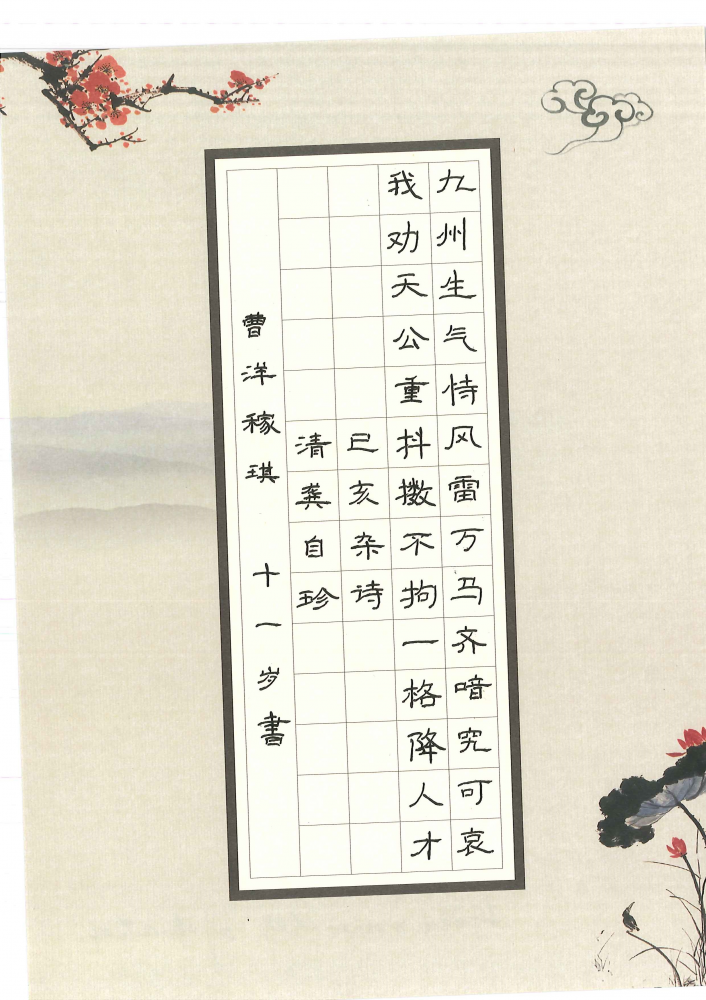 九州生气恃风雷万马齐喑究可哀
我劝天公重抖擞不拘一格降人才
已亥杂诗
清龚自珍
曹洋稼琪 十一岁书